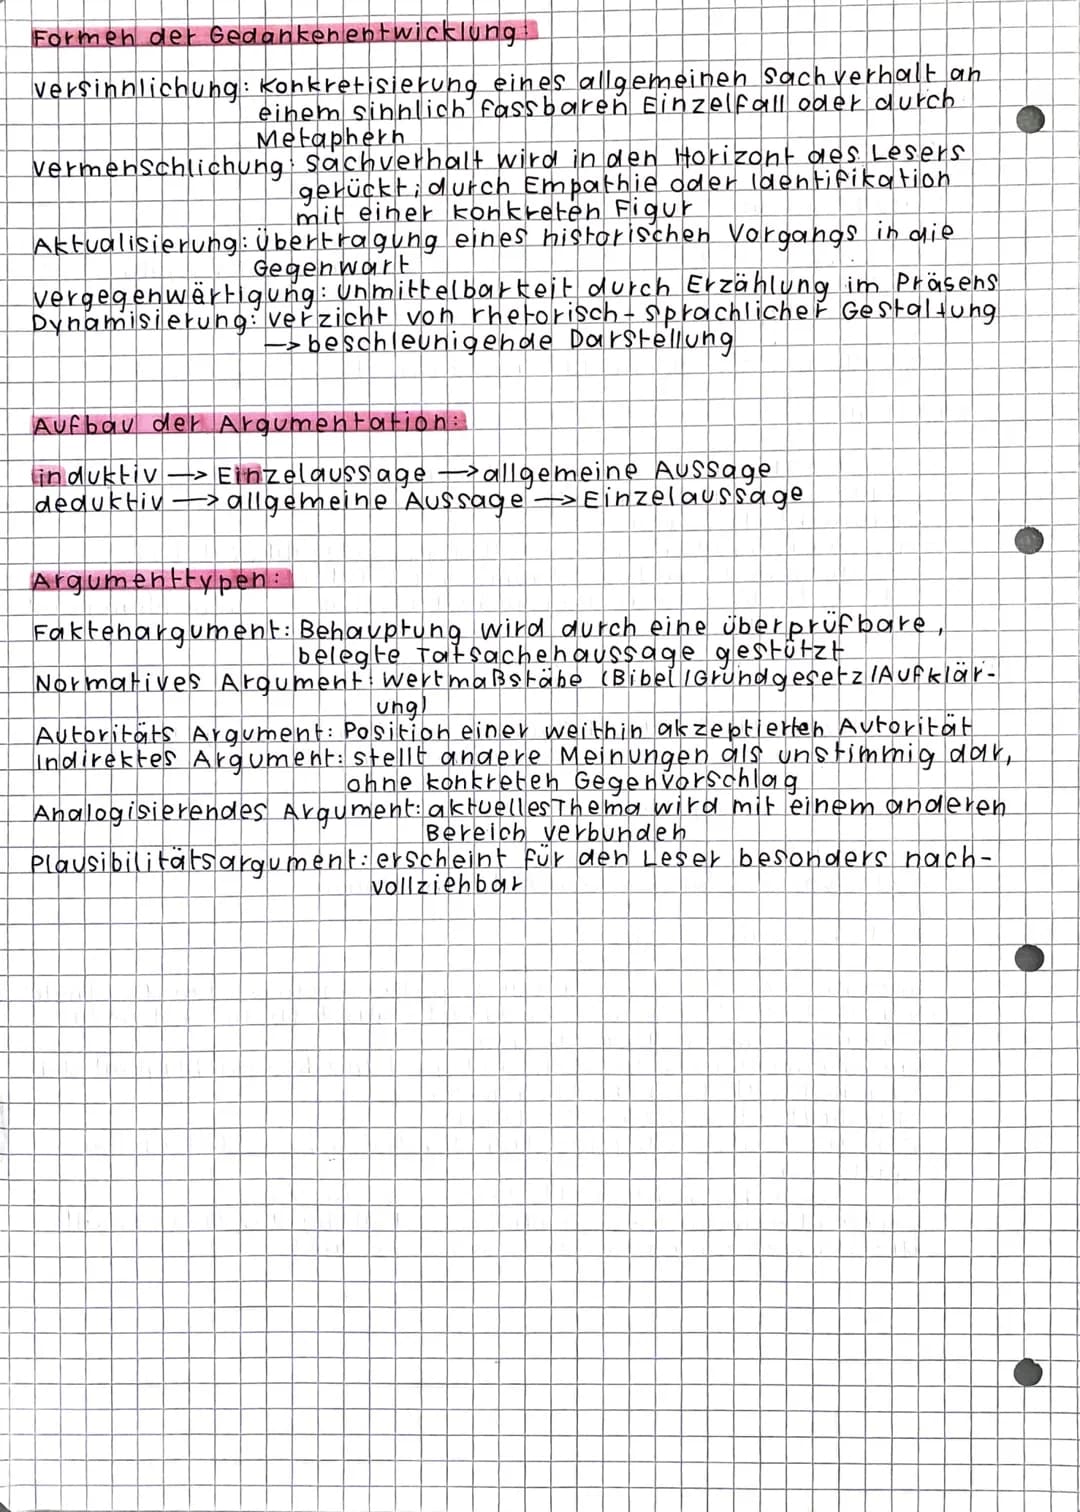 Formen der Gedankenentwicklung:
Versinnlichung: Konkretisierung eines allgemeinen Sachverhalt an
einem sinnlich fassbaren Einzelfall oder durch
Metaphern
Vermenschlichung: Sachverhalt wird in den Horizont des Lesers
gerückt; durch Empathie oder Identifikation
mit einer konkreten Figur
Aktualisierung: Übertragung eines historischen Vorgangs in die
Gegenwart
Vergegenwärtigung: Unmittelbarkeit durch Erzählung im Präsens
Dynamisierung: Verzicht von rhetorisch-sprachlicher Gestaltung
→ beschleunigende Darstellung
Aufbau der Argumentation:
induktiv → Einzelaussage → allgemeine Aussage
deduktiv → allgemeine Aussage → Einzelaussage
Argumenttypen:
Faktenargument: Behauptung wird durch eine überprüfbare,
belegte Tatsachenaussage gestützt
Normatives Argument: Wertmaßstäbe (Bibel/Grundgesetz/Aufklär-
ung)
Autoritäts Argument: Position einer weithin akzeptierten Autorität
Indirektes Argument: stellt andere Meinungen als unstimmig dar,
ohne konkreten Gegenvorschlag
Analogisierendes Argument: aktuelles Thema wird mit einem anderen
Bereich verbunden
Plausibilitätsargument: erscheint für den Leser besonders nach-
vollziehbar